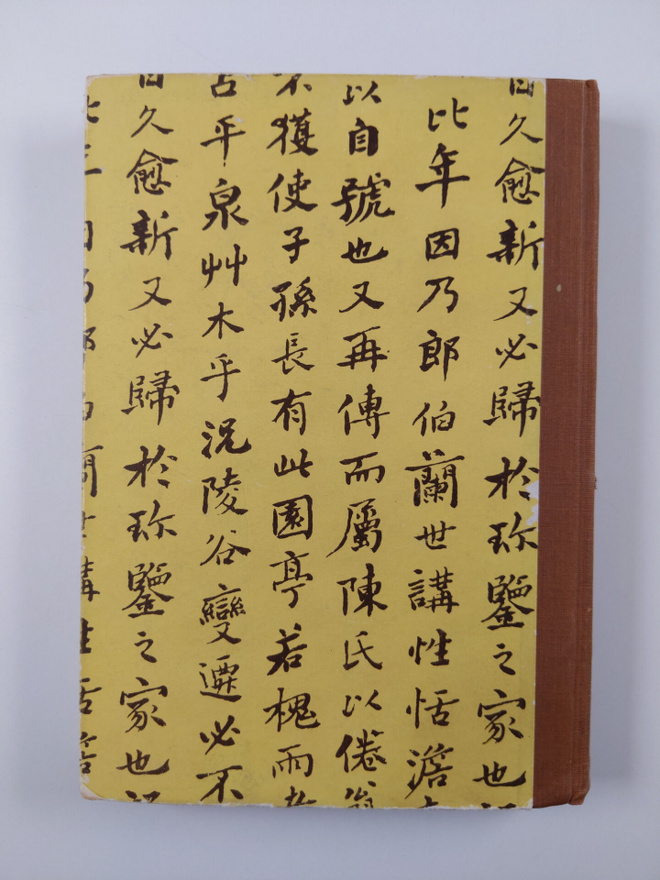 日久愈新又必歸於珎鑒之家也
比年因乃郎伯蘭世講性恬澹
以自號也又再傳而屬陳氏以倦
不獲使子孫長有此園亭若槐雨
平泉艸木乎況陵谷變遷必不
日久愈新又必歸於珎鑒之家也